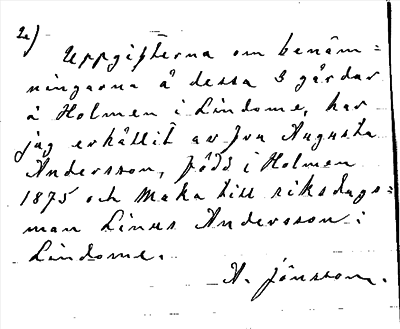 2a)
Uppgifterna om benäm=
ningarna å dessa 3 gårdar
å Holmen i Lindome, har
jag erhållit av fru Augusta
Andersson, född i Holmen
1875 och maka till riksdags=
man Linus Andersson i
Lindome.
A. Jönsson.